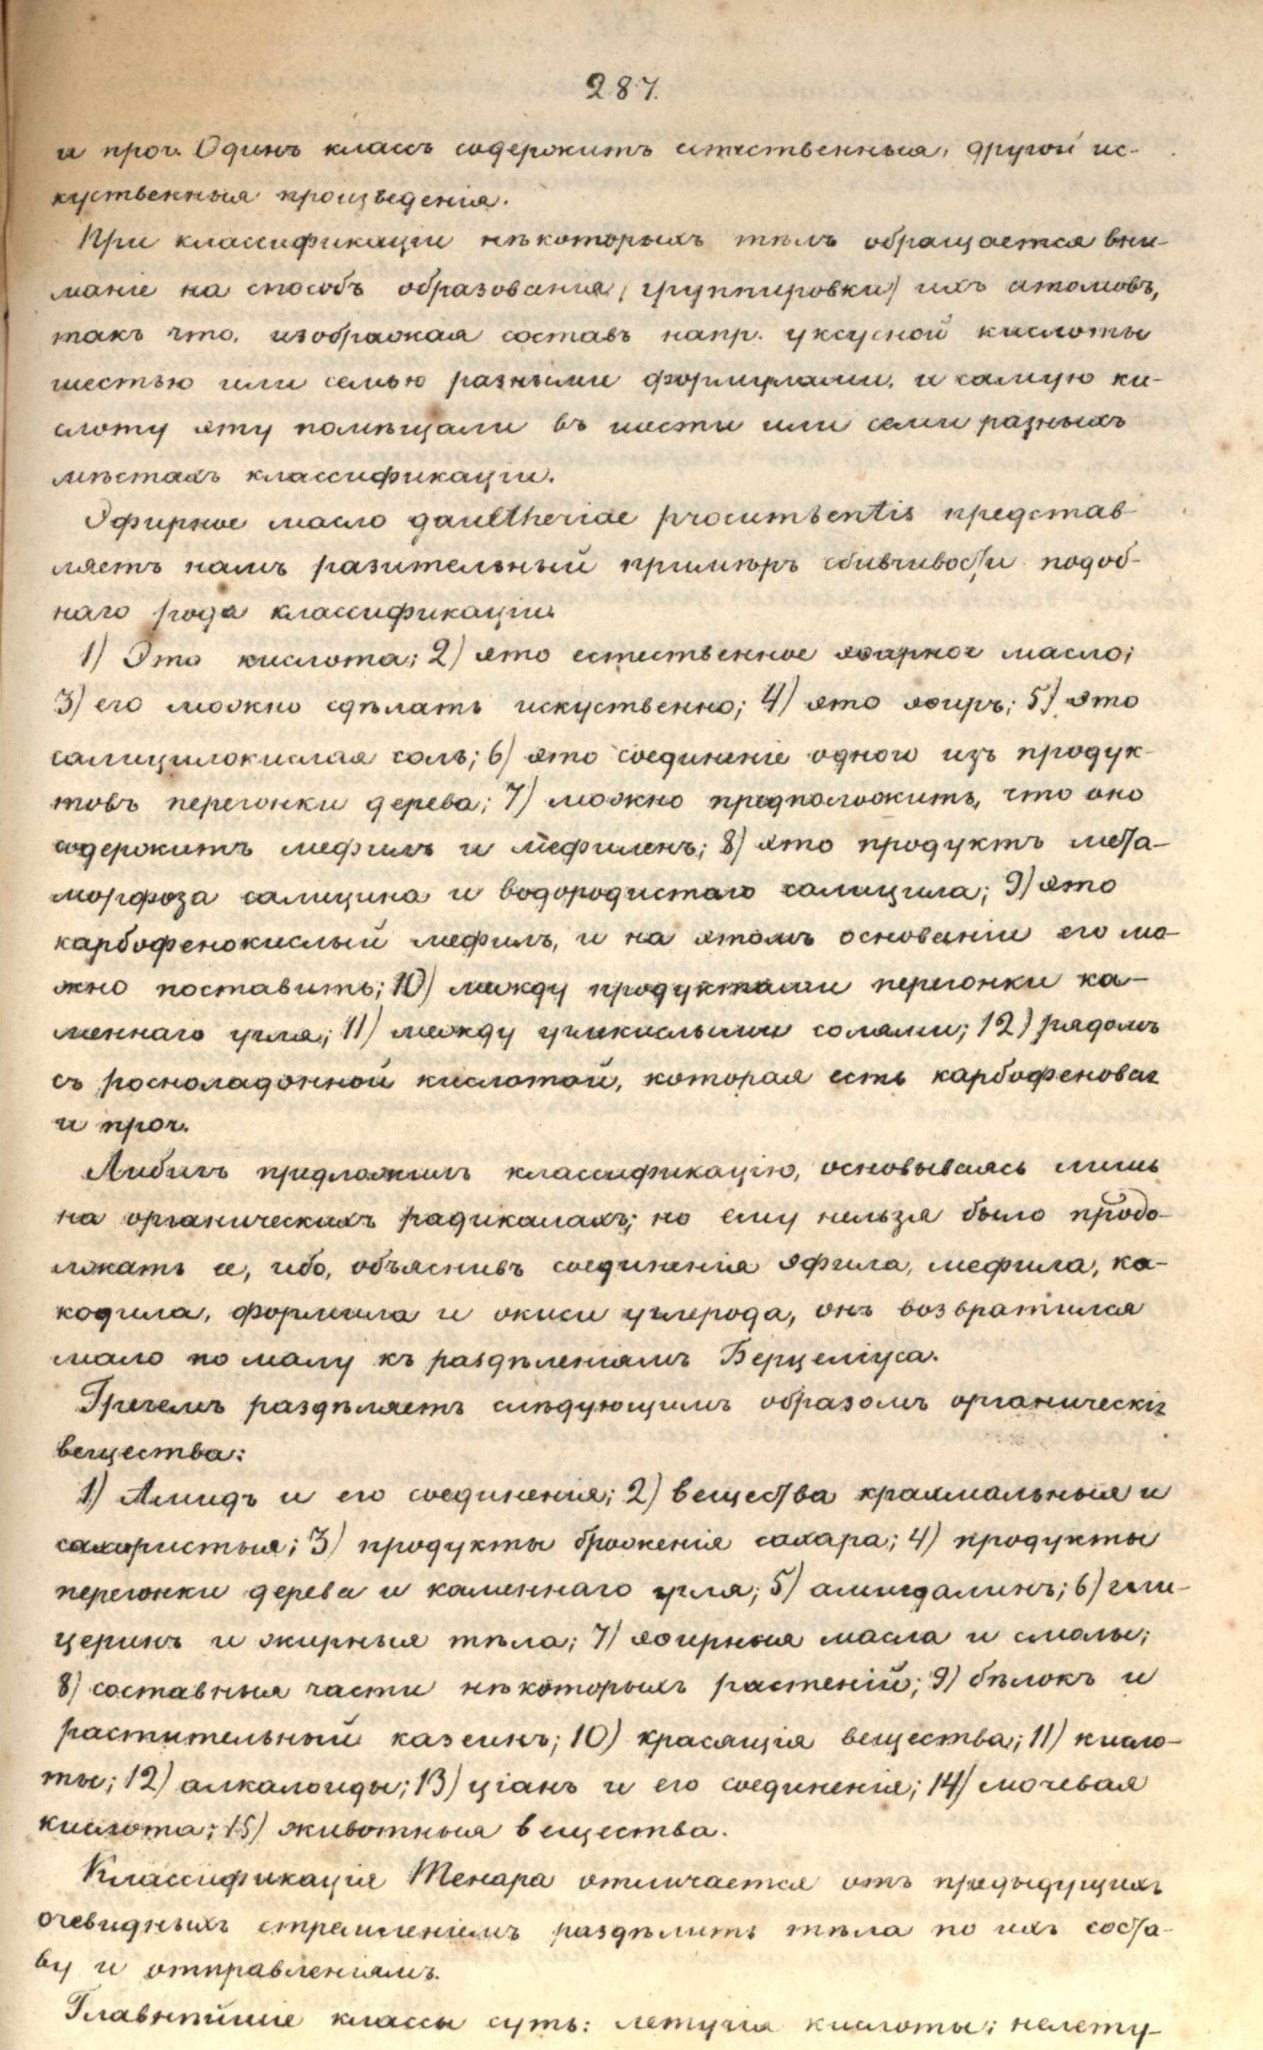 287.
и проч. Одинъ классъ содержитъ естественныя, другой ис-
куственныя произведенія.
При классификаціи нѣкоторыхъ тѣлъ обращается вни-
маніе на способъ образованія (группировки) ихъ атомовъ,
такъ что, изображая составъ напр. уксусной кислоты
шестью или семью разными формулами, и самую ки-
слоту эту помѣщали въ шести или семи разныхъ
мѣстахъ классификаціи.
Эфирное масло gaultheriae procumbentis представ-
ляетъ намъ разительный примѣръ сбивчивости подоб-
наго рода классификаціи.
1) Это кислота; 2) это естественное эѳирное масло;
3) его можно сдѣлать искуственно; 4) это эѳиръ; 5) это
салицилокислая соль; 6) это соединеніе одного изъ продук-
товъ перегонки дерева; 7) можно предположить, что оно
содержитъ мефилъ и мефиленъ; 8) это продуктъ мета-
морфоза салицина и водородистаго салицила; 9) это
карбофенокислый мефилъ, и на этомъ основаніи его мо-
жно поставить; 10) между продуктами перегонки ка-
меннаго угля; 11) между углекислыми солями; 12) рядомъ
съ росноладонной кислотой, которая есть карбофеновая
и проч.
Либихъ предложилъ классификацію, основываясь лишь
на органическихъ радикалахъ; но ему нельзя было продо-
лжать ее, ибо, объяснивъ соединенія эфила, мефила, ка-
кодила, формила и окиси углерода, онъ возвратился
мало по малу къ раздѣленіямъ Берцеліуса.
Грегемъ раздѣляетъ слѣдующимъ образомъ органическія
вещества:
1) Амидъ и его соединенія; 2) вещества крахмальныя и
сахаристыя; 3) продукты броженія сахара; 4) продукты
перегонки дерева и каменнаго угля; 5) амигдалинъ; 6) гли-
церинъ и жирныя тѣла; 7) эѳирныя масла и смолы;
8) составныя части нѣкоторыхъ растеній; 9) бѣлокъ и
растительный казеинъ; 10) красящія вещества; 11) кисло-
ты; 12) алкалоиды; 13) ціанъ и его соединенія; 14) мочевая
кислота; 15) животныя вещества.
Классификація Тенара отличается отъ предыдущихъ
очевиднымъ стремленіемъ раздѣлить тѣла по ихъ соста-
ву и отправленіямъ.
Главнѣйшіе классы суть: летучія кислоты; нелету-